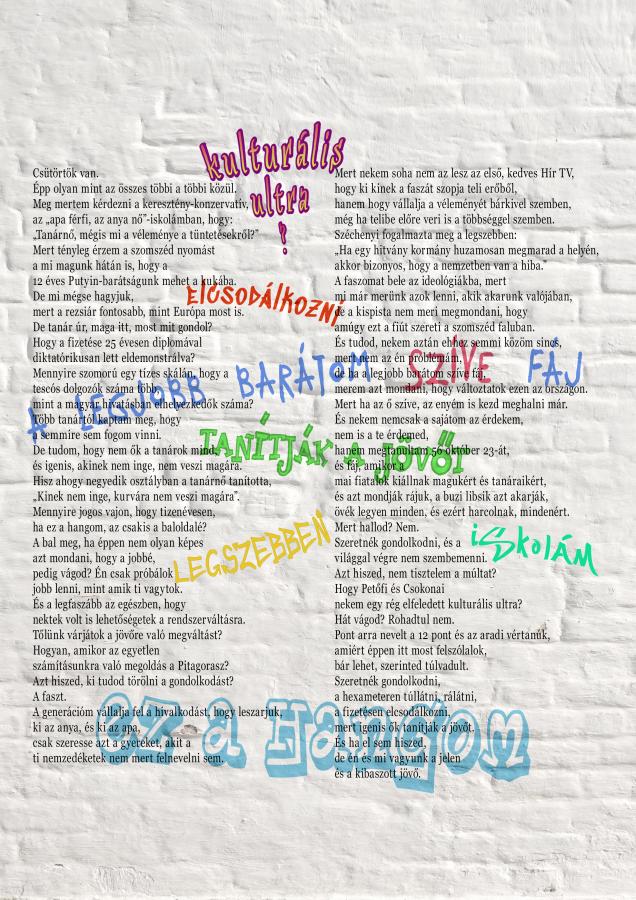 kulturális
ultra
?
Csütörtök van.
Épp olyan mint az összes többi a többi közül.
Meg mertem kérdezni a keresztény-konzervatív,
az „apa férfi, az anya nő”-iskolámban, hogy:
„Tanárnő, mégis mi a véleménye a tüntetésekről?”
Mert tényleg érzem a szomszéd nyomást
a mi magunk hátán is, hogy a
12 éves Putyin-barátságunk mehet a kukába.
De mi mégse hagyjuk,
mert a rezsiár fontosabb, mint Európa most is.
De tanár úr, mága itt, most mit gondol?
Hogy a fizetése 25 évesen diplomával
diktatórikusan lett eldemonstrálva?
Mennyire szomorú egy tízes skálán, hogy a
tescós dolgozók száma több,
mint a magyar hivatásban elhelyezkedők száma?
Több tanártól kaptam meg, hogy
a semmire sem fogom vinni.
De tudom, hogy nem ők a tanárok mind,
és igenis, akinek nem inge, nem veszi magára.
Hisz ahogy negyedik osztályban a tanárnő tanította,
„Kinek nem inge, kurvára nem veszi magára”.
Mennyire jogos vajon, hogy tizenévesen,
ha ez a hangom, az csakis a baloldalé?
A bal meg, ha éppen nem olyan képes
azt mondani, hogy a jobbé,
pedig vágod? Én csak próbálok
jobb lenni, mint amik ti vagytok.
És a legfaszább az egészben, hogy
nektek volt is lehetőségetek a rendszerváltásra.
Tőlünk várjátok a jövőre való megváltást?
Hogyan, amikor az egyetlen
számításunkra való megoldás a Pitagorasz?
Azt hiszed, ki tudod törölni a gondolkodást?
A faszt.
A generációm vállalja fel a hivalkodást, hogy leszarjuk,
ki az anya, és ki az apa,
csak szeresse azt a gyereket, akit a
ti nemzedéketek nem mert felnevelni sem.
Mert nekem soha nem az lesz az első, kedves Hír TV,
hogy ki kinek a faszát szopja teli erőből,
hanem hogy vállalja a véleményét bárkivel szemben,
még ha telibe előre veri is a többséggel szemben.
Széchenyi fogalmazta meg a legszebben:
„Ha egy hitvány kormány huzamosan megmarad a helyén,
akkor bizonyos, hogy a nemzetben van a hiba.”
A faszomat bele az ideológiákba, mert
mi már merünk azok lenni, akik akarunk valójában,
de a kispista nem meri megmondani, hogy
amúgy ezt a fiút szereti a szomszéd faluban.
És tudod, nekem aztán ehhez semmi közöm sincs,
mert nem az én problémám,
de ha a legjobb barátom szíve fáj,
merem azt mondani, hogy változtatok ezen az országon.
Mert ha az ő szíve, az enyém is kezd meghalni már.
És nekem nemcsak a sajátom az érdekem,
nem is a te érdemed,
hanem megtanultam 56 október 23-át,
és fáj, amikor a
mai fiatalok kiállnak magukért és tanáraikért,
és azt mondják rájuk, a buzi libsik azt akarják,
övék legyen minden, és ezért harcolnak, mindenért.
Mert hallod? Nem.
Szeretnék gondolkodni, és a
világgal végre nem szembemenni.
Azt hiszed, nem tisztelem a múltat?
Hogy Petőfi és Csokonai
nekem egy rég elfeledett kulturális ultra?
Hát vágod? Rohadtul nem.
Pont arra nevelt a 12 pont és az aradi vértanúk,
amiért éppen itt most felszólalok,
bár lehet, szerinted túlvadult.
Szeretnék gondolkodni,
a hexameteren túllátni, rálátni,
a fizetésen elcsodálkozni,
mert igenis ők tanítják a jövőt.
És ha el sem hiszed,
de én és mi vagyunk a jelen
és a kibaszott jövő.
ELCSODÁLKOZNI
A LEGJOBB BARÁTOM SZÍVE FÁJ
TANÍTJÁK A JÖVŐT
LEGSZEBBEN
iSkolÁM
ez a Hangom